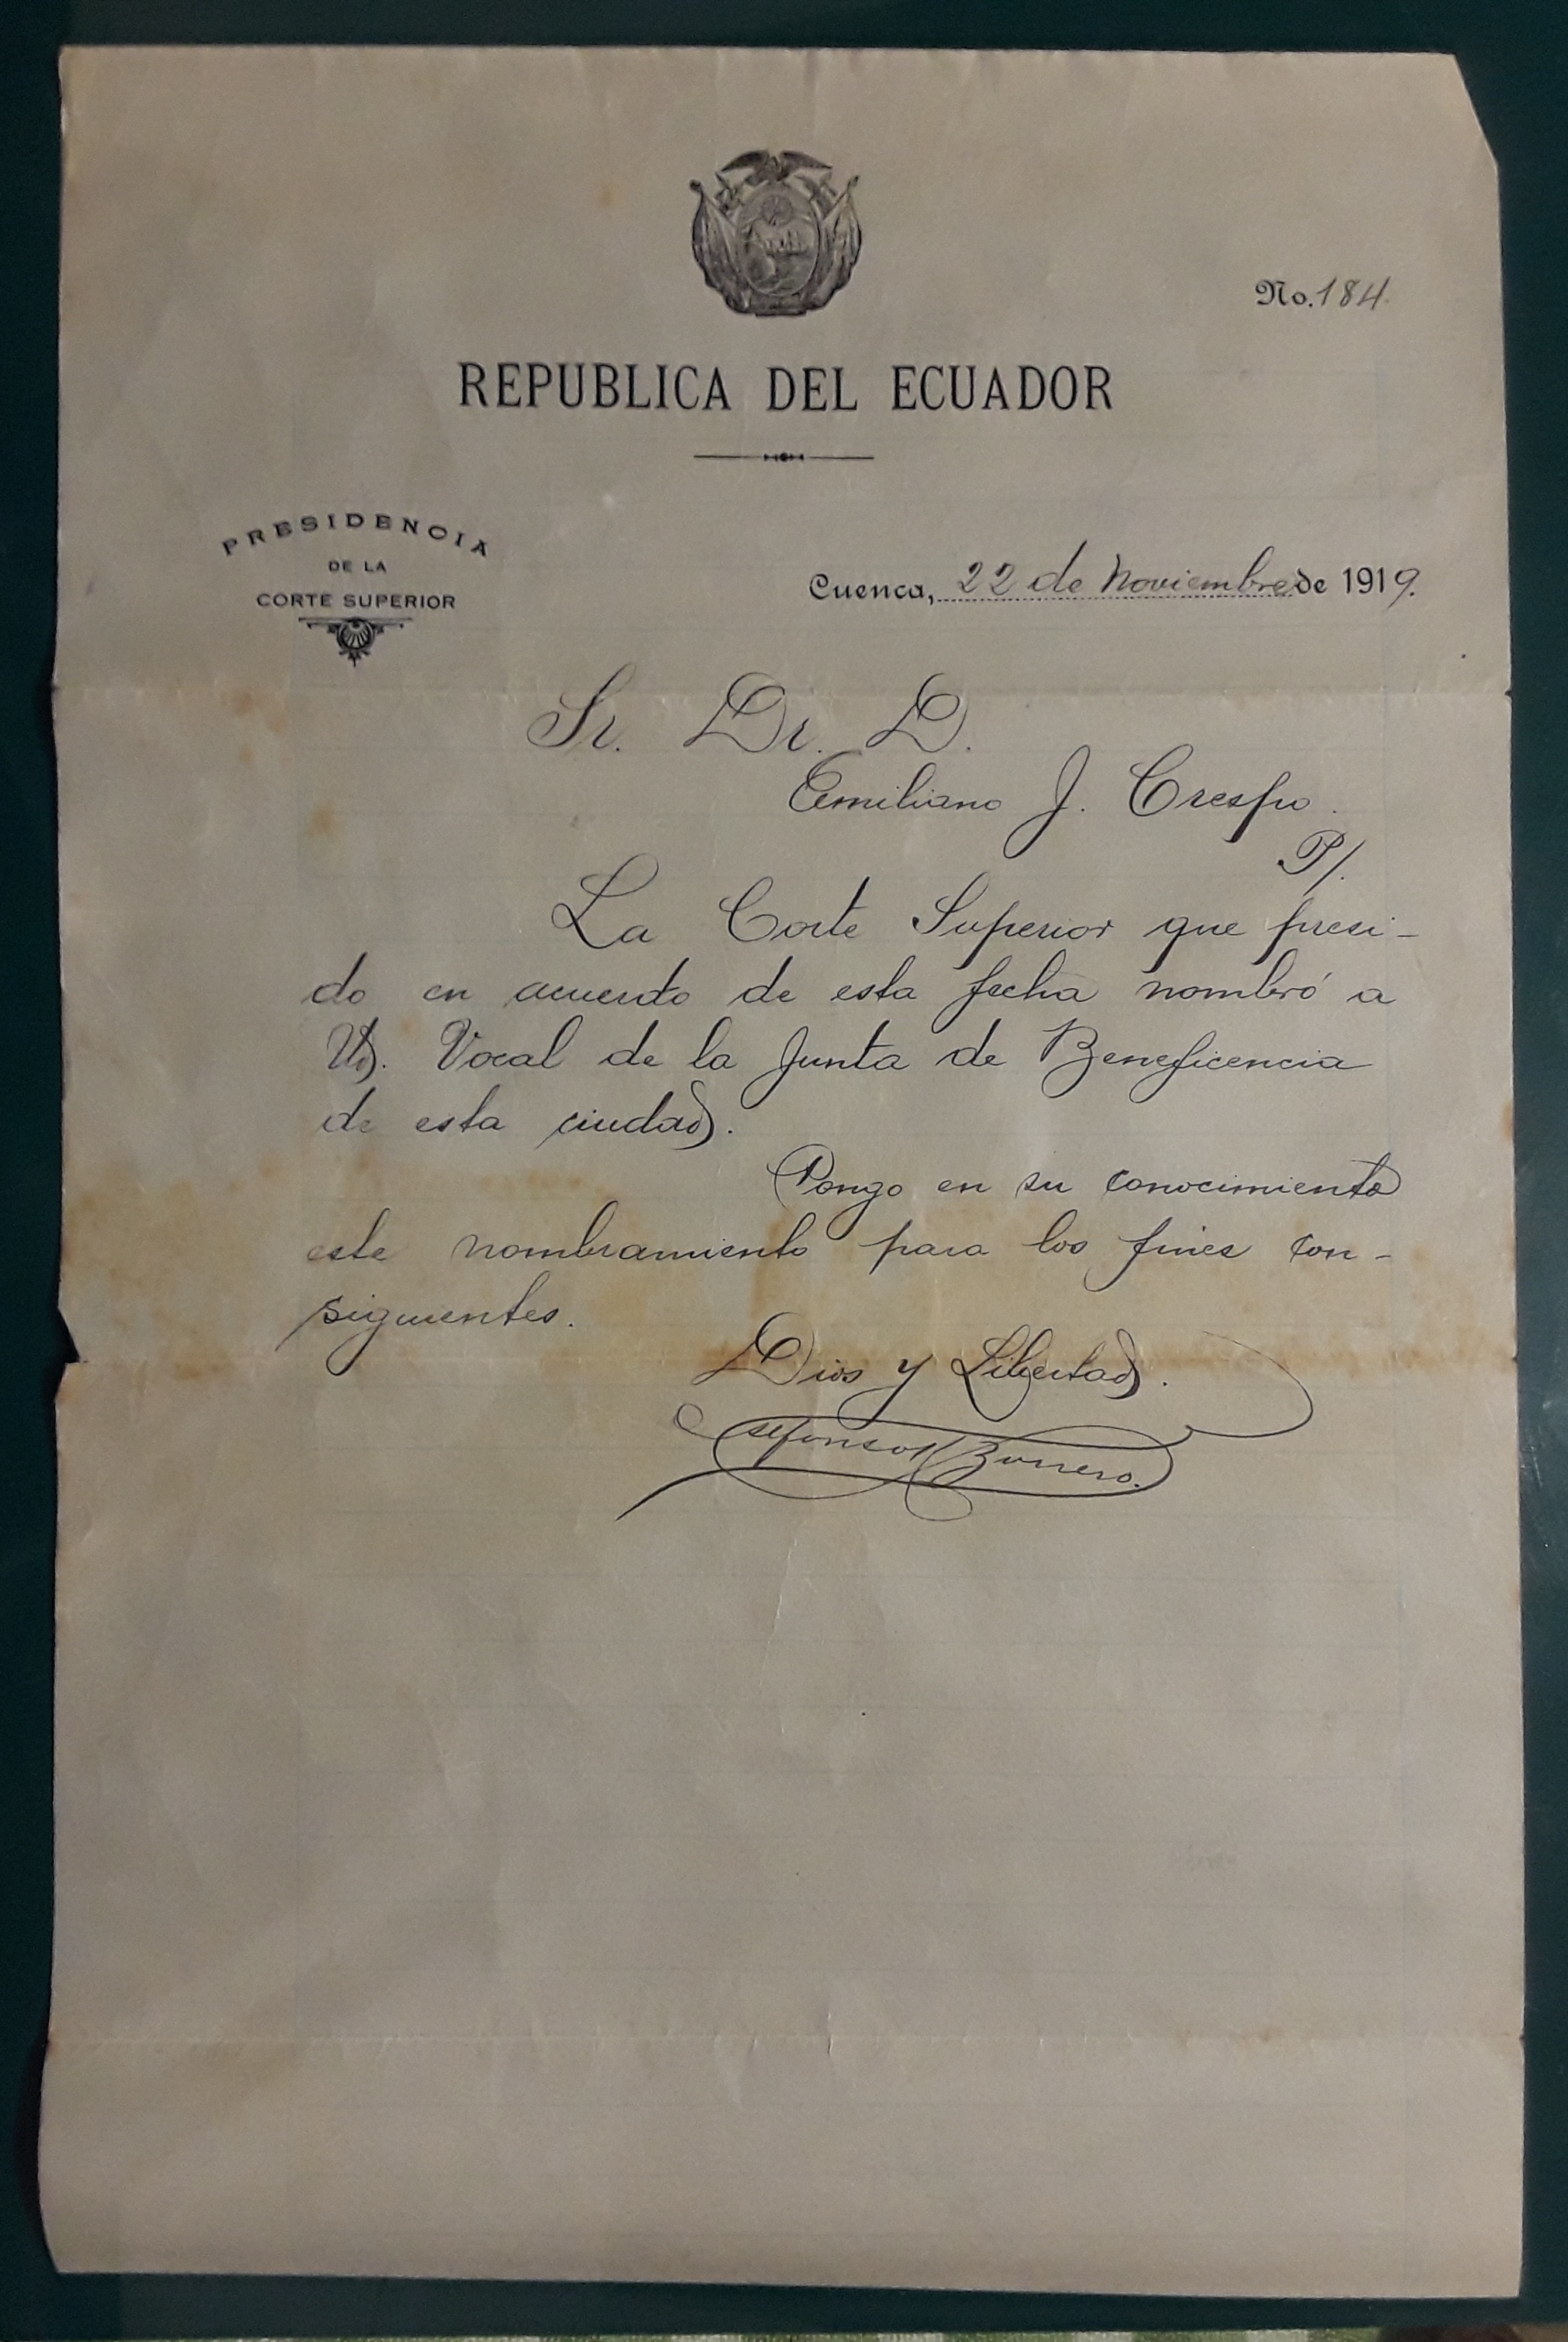 No. 184.
REPUBLICA DEL ECUADOR
PRESIDENCIA
DE LA
CORTE SUPERIOR
Cuenca, 22 de Noviembre de 1919.
Sr. Dr. D.
Emiliano J. Crespo.
P/.
La Corte Superior que presi-
do en acuerdo de esta fecha nombró a
Ud. Vocal de la Junta de Beneficencia
de esta ciudad.
Pongo en su conocimiento
este nombramiento para los fines con-
siguientes.
Dios y Libertad.
Borrero.